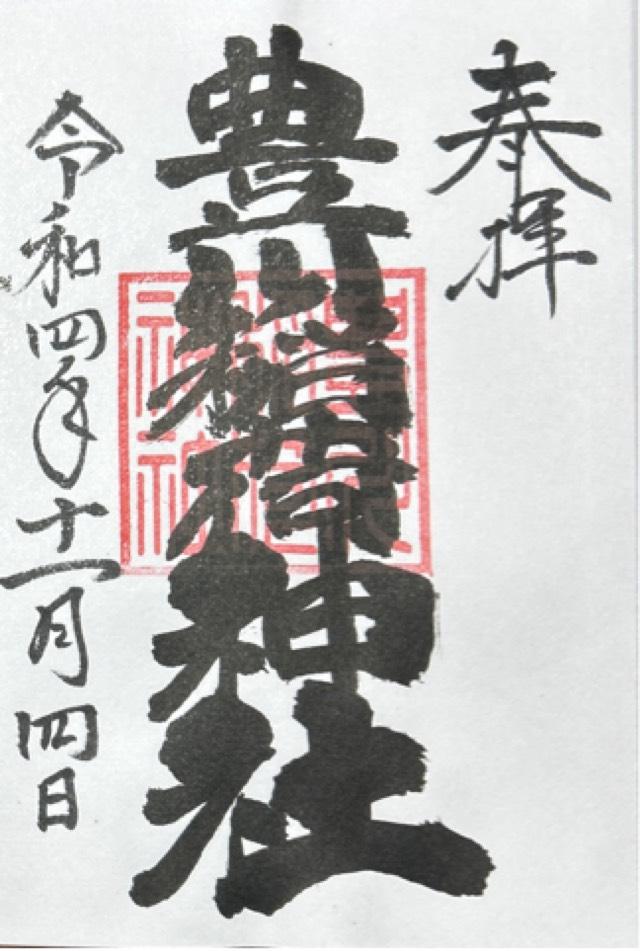 奉拝
豊川稲荷神社
令和四年十一月四日